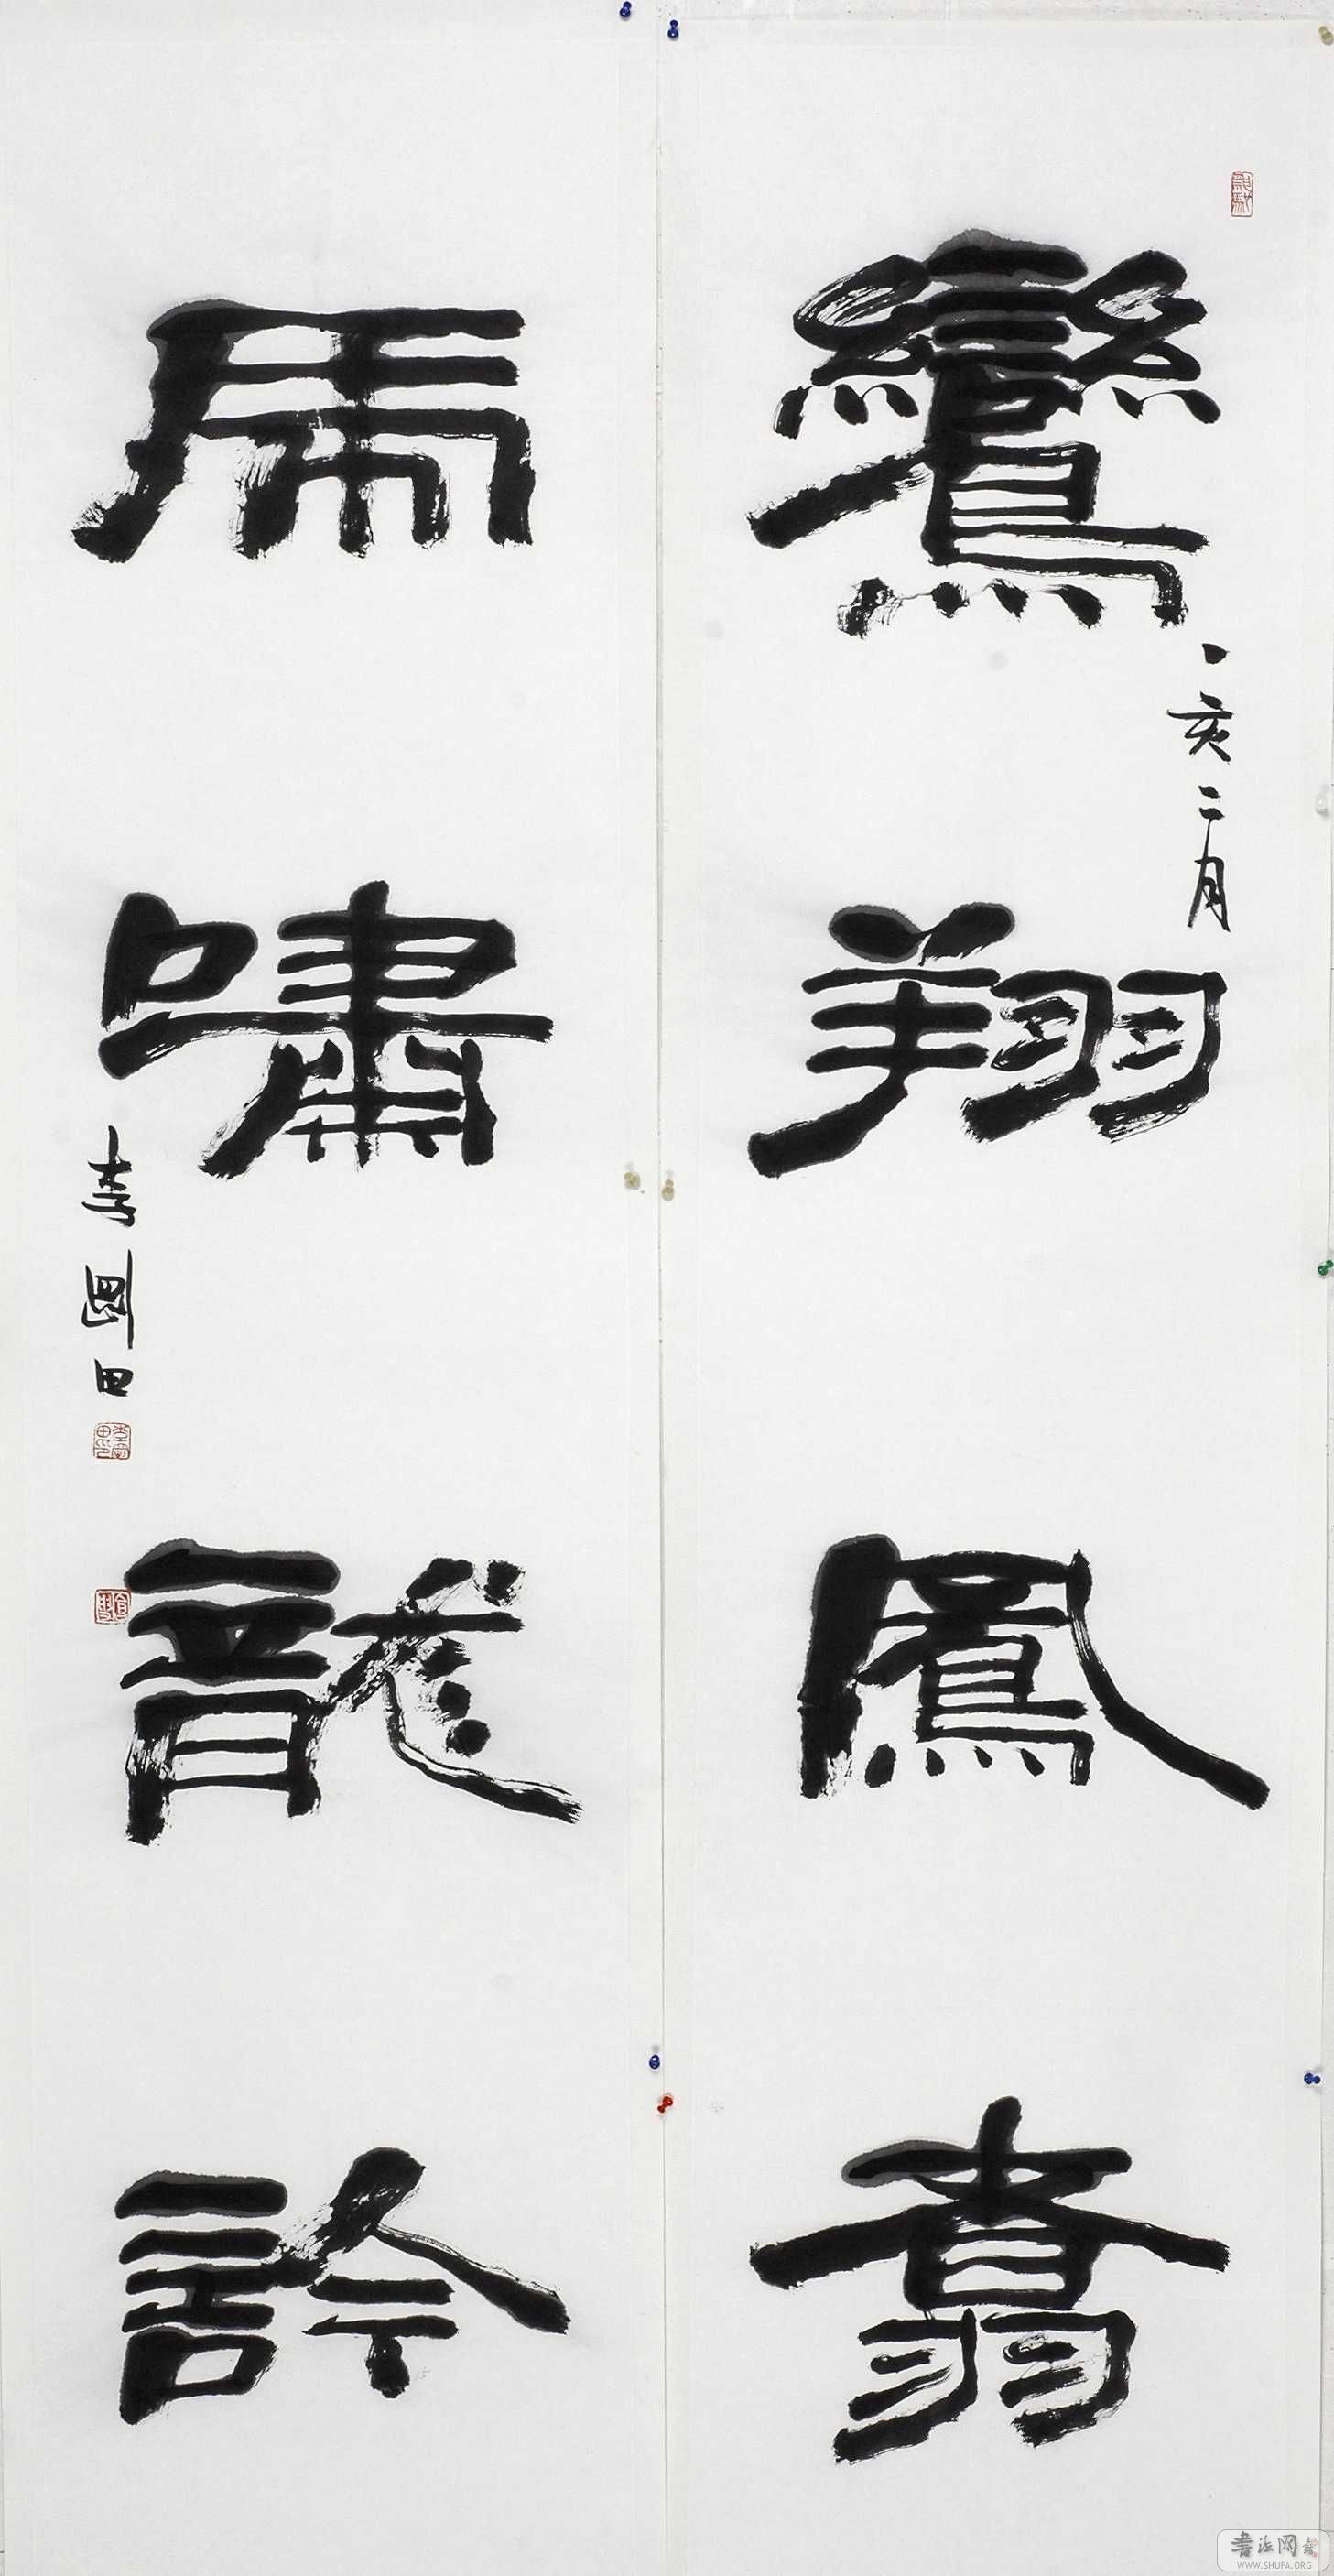 鸞翔鳳翥
丁亥二月
虎嘯龍訡
李剛田
書法网
WWW.SHUFA.ORG